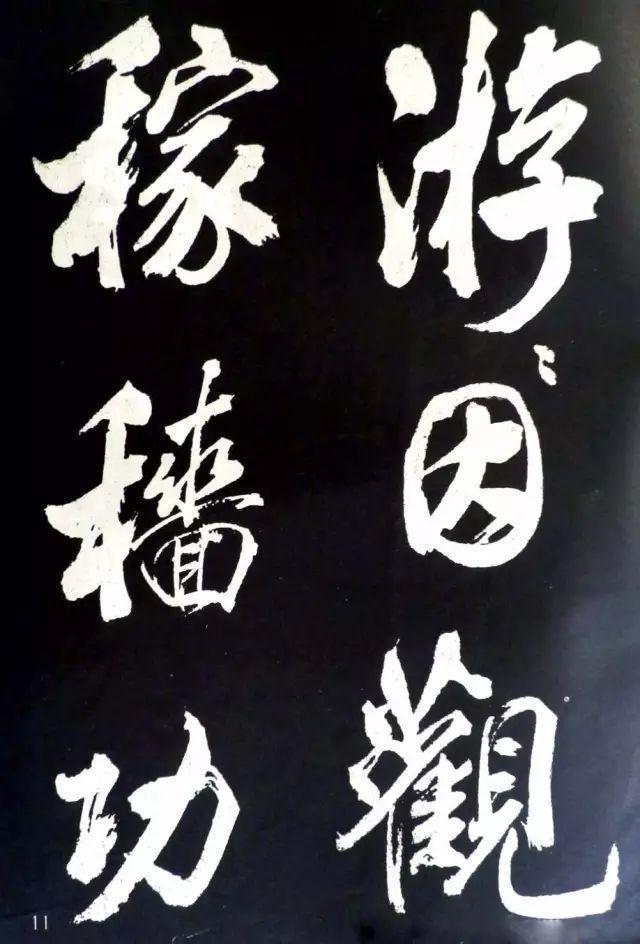 游〻因觀
稼穡功
11